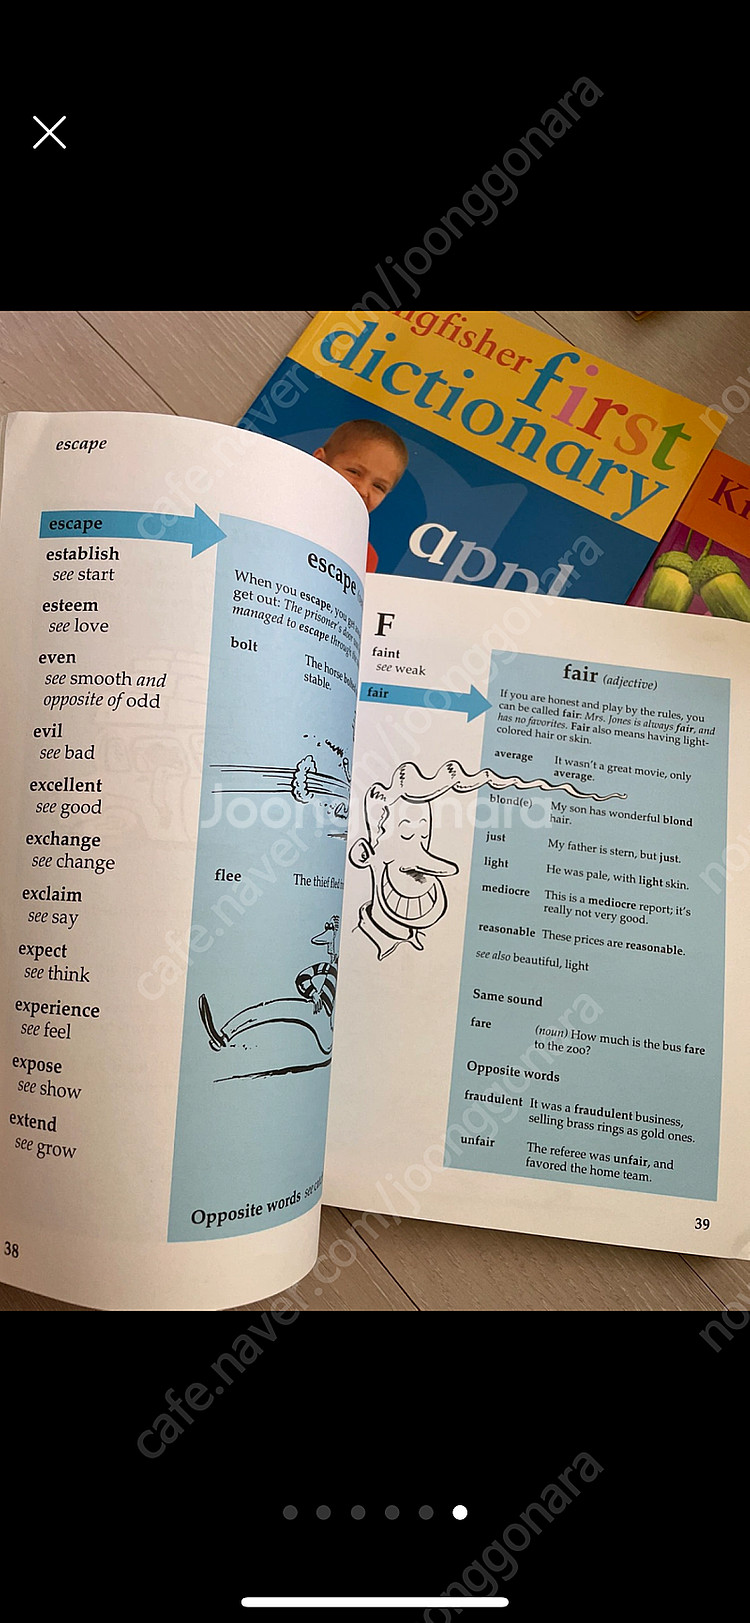 ngfisher first
dictionary
app
escape
escape
establish
see start
esteem
see love
even
see smooth and
opposite of odd
evil
see bad
excellent
see good
exchange
see change
exclaim
see say
expect
see think
experience
see feel
expose
see show
extend
see grow
38
escape
When you escape, you get
get out: The prisoner's door
managed to escape through
bolt
The horse bolted
stable.
flee
The thief fled
Opposite words see
F
faint
see weak
fair
fair (adjective)
If you are honest and play by the rules, you
can be called fair: Mrs. Jones is always fair, and
has no favorites. Fair also means having light-
colored hair or skin.
average It wasn't a great movie, only
average.
blond(e) My son has wonderful blond
hair.
just My father is stern, but just.
light He was pale, with light skin.
mediocre This is a mediocre report; it's
really not very good.
reasonable These prices are reasonable.
see also beautiful, light
Same sound
fare (noun) How much is the bus fare
to the zoo?
Opposite words
fraudulent It was a fraudulent business,
selling brass rings as gold ones.
unfair The referee was unfair, and
favored the home team.
39
Joonggonara
cafe.naver.com/joonggonara
cafe.naver.com/joonggonara
cafe.naver.com/joonggonara